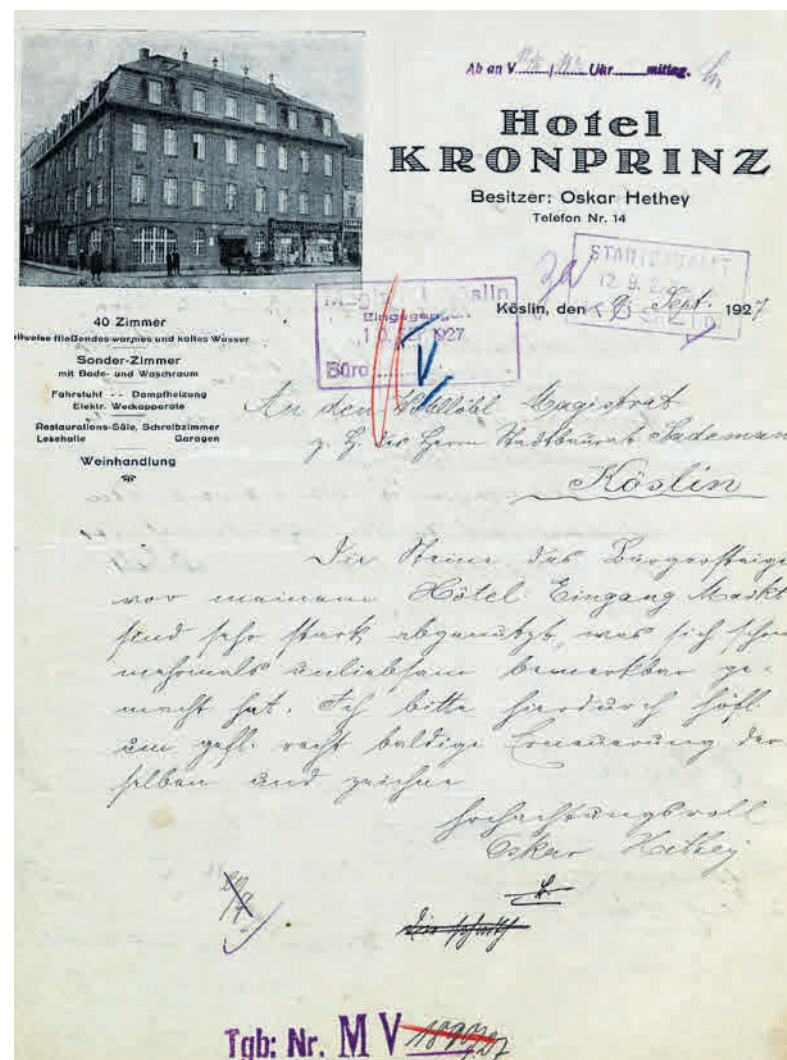 Ab an V / Uhr mittag.
Hotel
KRONPRINZ
Besitzer: Oskar Hethey
Telefon Nr. 14
STADTBAUAMT
12. 9. 2
KÖSLIN
Köslin, den 9. Sept. 1927
Magistrat Köslin
Eingegangen
10. 1927
Büro
40 Zimmer
teilweise fließendes warmes und kaltes Wasser
Sonder-Zimmer
mit Bade- und Waschraum
Fahrstuhl -- Dampfheizung
Elektr. Weckapparate
Restaurations-Säle, Schreibzimmer
Lesehalle Garagen
Weinhandlung
An den Wohllöbl. Magistrat
z. H. des Herrn Stadtbaurat
Köslin
Die Steine des Bürgersteiges
vor meinem Hôtel Eingang Markt
sind sehr stark abgenutzt, was sich schon
mehrmals unliebsam bemerkbar ge-
macht hat. Ich bitte hierdurch höfl.
um gefl. recht baldige Erneuerung der-
selben und zeichne
hochachtungsvoll
Oskar Hethey
Tgb: Nr. M V